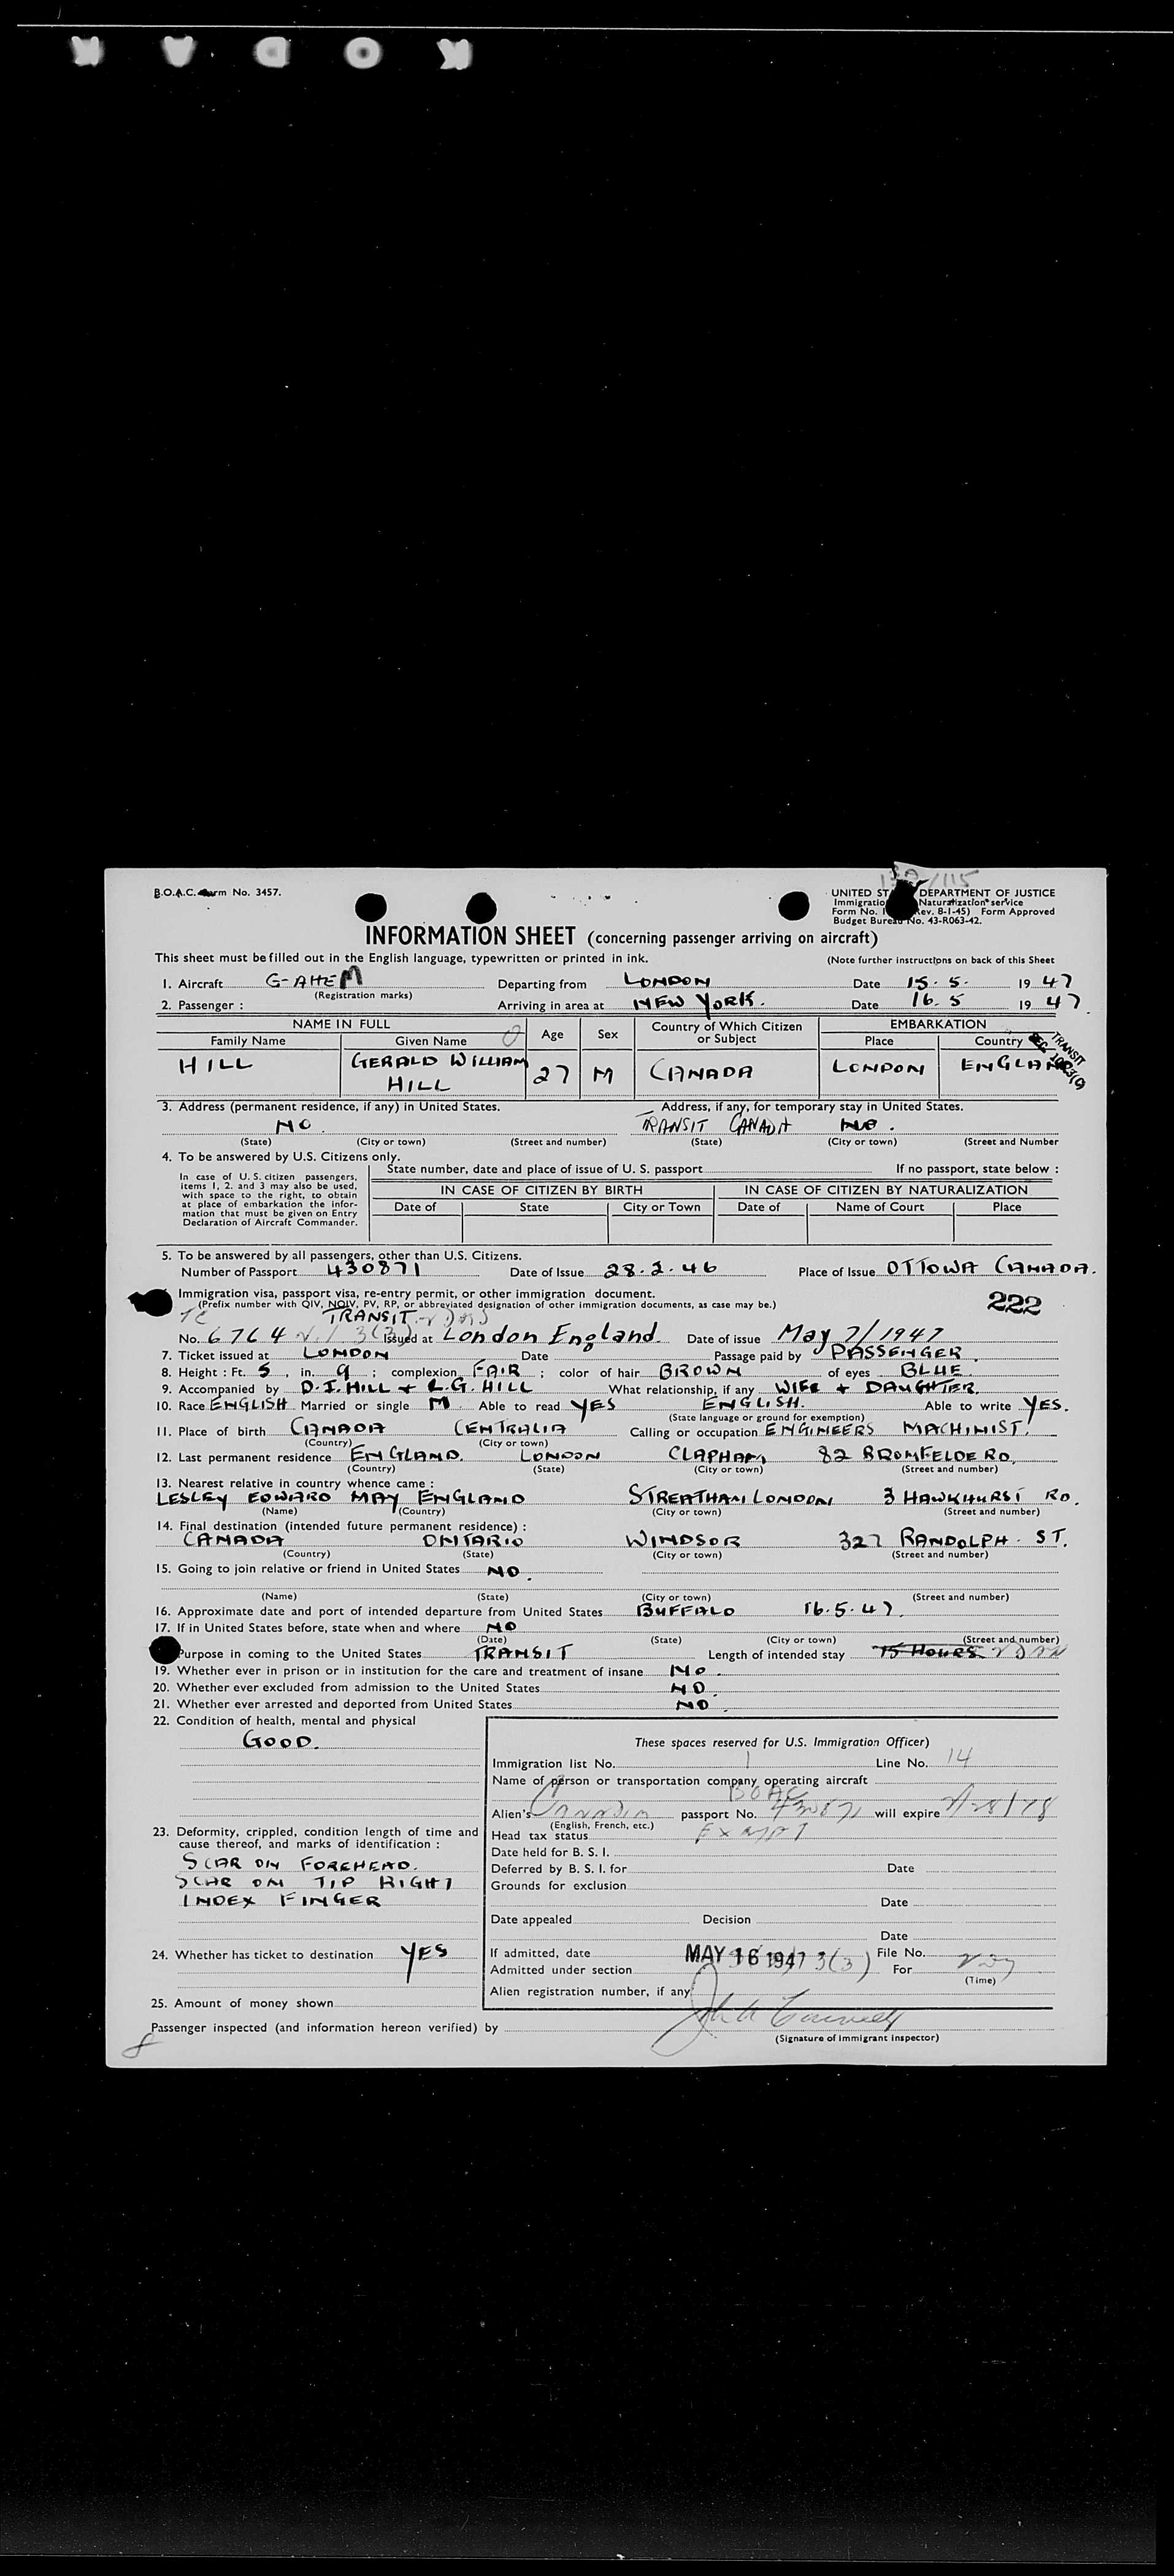 KODAK
B.O.A.C. Form No. 3457.
UNITED ST DEPARTMENT OF JUSTICE
Immigratio Naturalization service
Form No. I ev. 8-1-45) Form Approved
Budget Bureau No. 43-R063-42.
INFORMATION SHEET (concerning passenger arriving on aircraft)
This sheet must be filled out in the English language, typewritten or printed in ink. (Note further instructions on back of this Sheet
1. Aircraft G-AHEM Departing from LONDON Date 15.5. 1947
(Registration marks)
2. Passenger : Arriving in area at NEW YORK. Date 16.5 1947
NAME IN FULL Age Sex Country of Which Citizen or Subject EMBARKATION
Family Name Given Name Place Country
TRANSIT
SEC 10.23(c)
HILL GERALD WILLIAM HILL 27 M CANADA LONDON ENGLAND
3. Address (permanent residence, if any) in United States. Address, if any, for temporary stay in United States.
NO. TRANSIT CANADA NO.
(State) (City or town) (Street and number) (State) (City or town) (Street and Number
4. To be answered by U.S. Citizens only.
State number, date and place of issue of U. S. passport If no passport, state below :
In case of U. S. citizen passengers,
items 1, 2, and 3 may also be used,
with space to the right, to obtain
at place of embarkation the infor-
mation that must be given on Entry
Declaration of Aircraft Commander.
IN CASE OF CITIZEN BY BIRTH IN CASE OF CITIZEN BY NATURALIZATION
Date of State City or Town Date of Name of Court Place
5. To be answered by all passengers, other than U.S. Citizens.
Number of Passport 430871 Date of Issue 28.2.46 Place of Issue OTTOWA CANADA.
Immigration visa, passport visa, re-entry permit, or other immigration document.
222
(Prefix number with QIV, NQIV, PV, RP, or abbreviated designation of other immigration documents, as case may be.)
TC TRANSIT
No. 6764 3(3) Issued at London England Date of issue May 7/1947
7. Ticket issued at LONDON Date Passage paid by PASSENGER.
8. Height : Ft. 5, in. 9 ; complexion FAIR ; color of hair BROWN of eyes BLUE.
9. Accompanied by D.I. HILL + L.G. HILL What relationship, if any WIFE + DAUGHTER.
10. Race ENGLISH Married or single M Able to read YES ENGLISH. Able to write YES.
(State language or ground for exemption)
11. Place of birth CANADA CENTRALIA Calling or occupation ENGINEERS MACHINIST.
(Country) (City or town)
12. Last permanent residence ENGLAND. LONDON CLAPHAM, 82 BROMFELDE RD.
(Country) (State) (City or town) (Street and number)
13. Nearest relative in country whence came :
LESLEY EDWARD MAY ENGLAND STREATHAM LONDON 3 HAWKHURST RD.
(Name) (Country) (City or town) (Street and number)
14. Final destination (intended future permanent residence) :
CANADA ONTARIO WINDSOR 327 RANDOLPH. ST.
(Country) (State) (City or town) (Street and number)
15. Going to join relative or friend in United States NO.
(Name) (State) (City or town) (Street and number)
16. Approximate date and port of intended departure from United States BUFFALO 16.5.47.
17. If in United States before, state when and where NO
(Date) (State) (City or town) (Street and number)
Purpose in coming to the United States TRANSIT Length of intended stay 15 HOURS
19. Whether ever in prison or in institution for the care and treatment of insane NO.
20. Whether ever excluded from admission to the United States NO.
21. Whether ever arrested and deported from United States NO.
22. Condition of health, mental and physical
GOOD.
These spaces reserved for U.S. Immigration Officer)
Immigration list No. 1 Line No. 14
Name of person or transportation company operating aircraft
BOAC
Alien's Canadian passport No. 430871 will expire
(English, French, etc.)
23. Deformity, crippled, condition length of time and
cause thereof, and marks of identification :
SCAR ON FOREHEAD.
SCAR ON TIP RIGHT
INDEX FINGER
Head tax status Exempt
Date held for B. S. I.
Deferred by B. S. I. for Date
Grounds for exclusion
Date
Date appealed Decision
Date
24. Whether has ticket to destination YES
If admitted, date MAY 16 1947 File No.
Admitted under section 3(3) For
(Time)
Alien registration number, if any
25. Amount of money shown
Passenger inspected (and information hereon verified) by
(Signature of immigrant inspector)
8